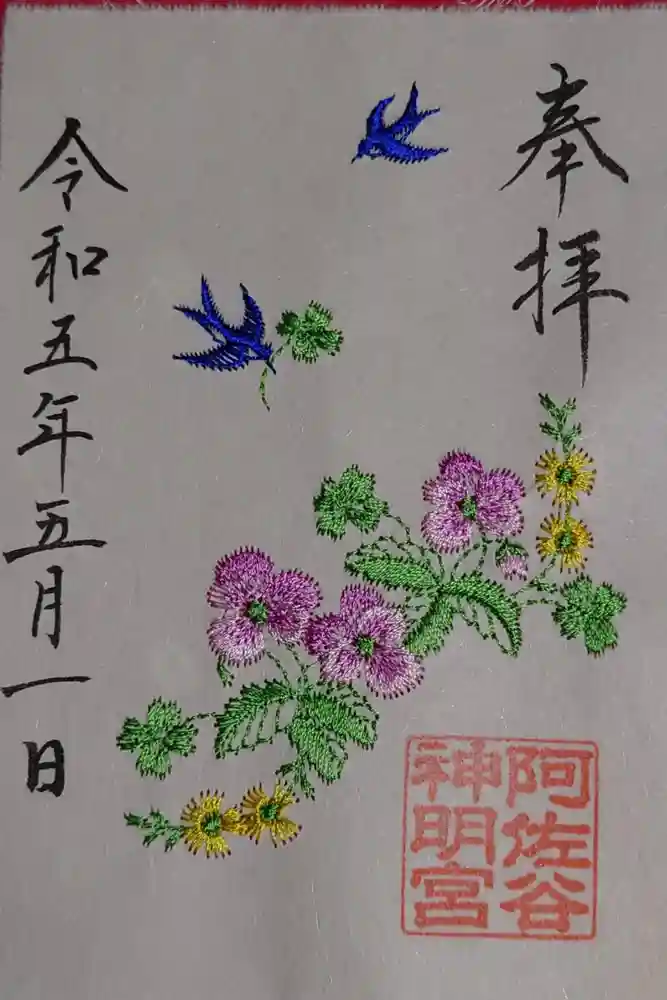 奉拝
阿佐谷
神明宮
令和五年五月一日